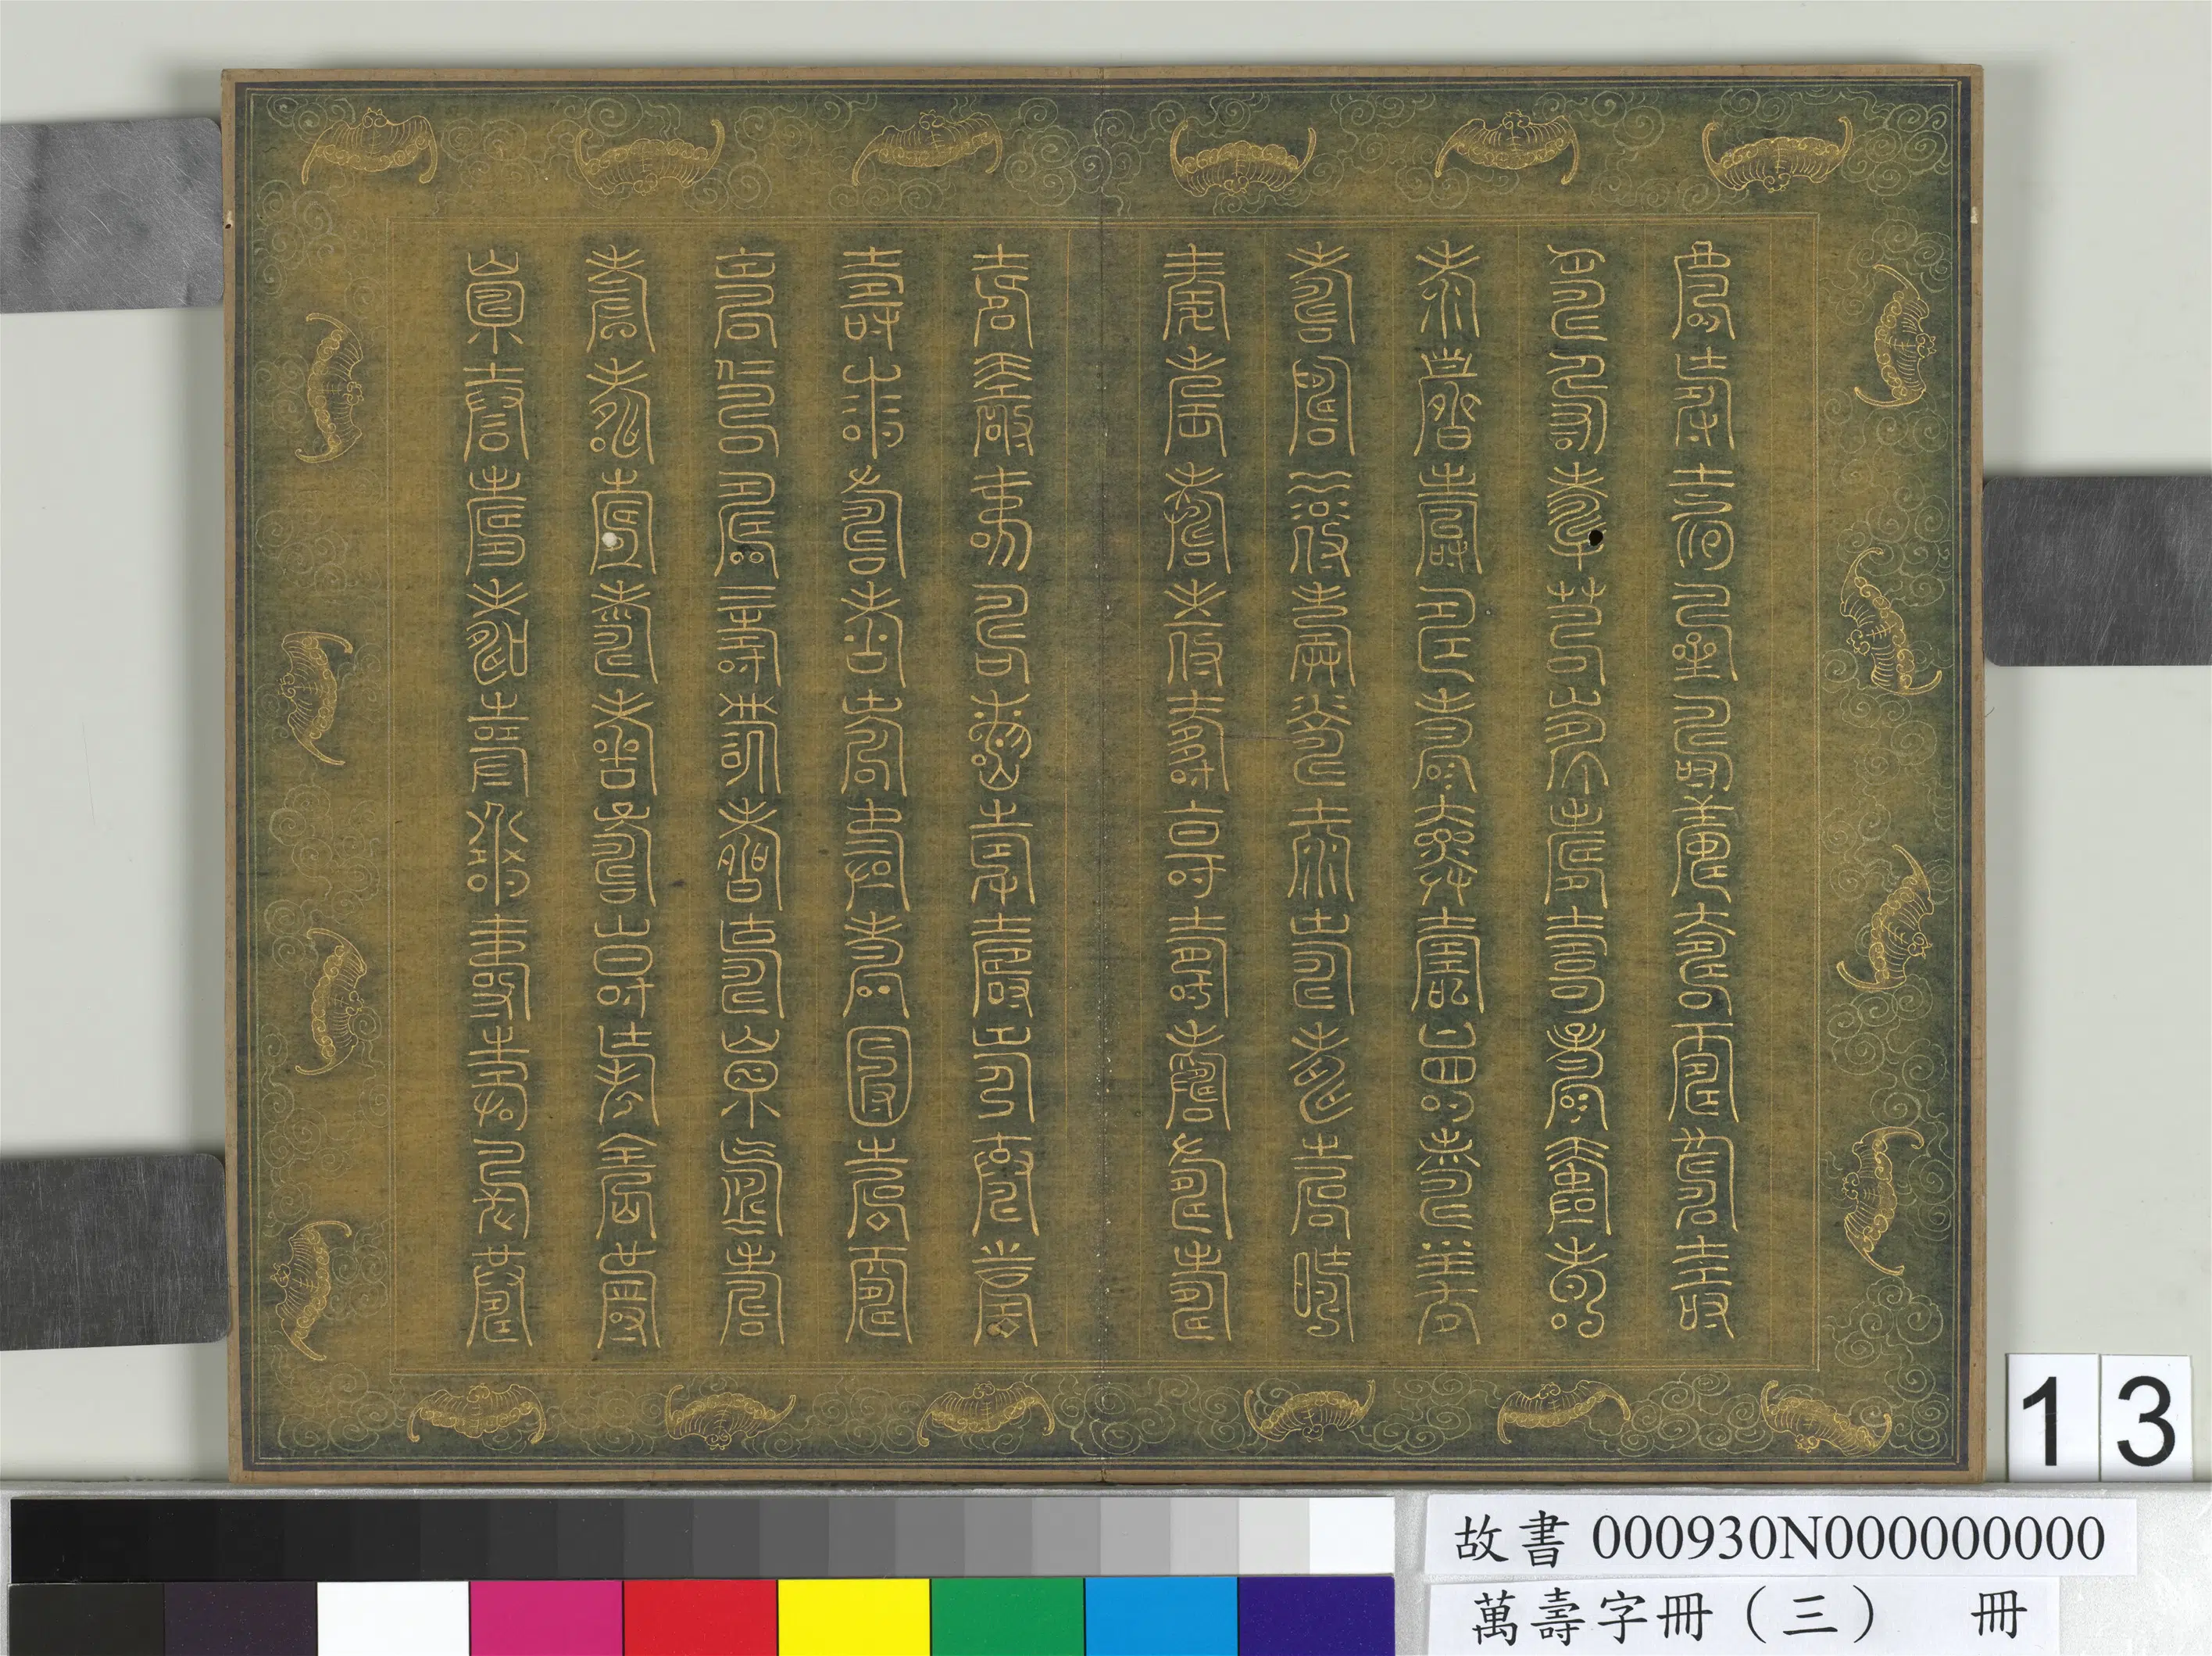 壽壽壽壽壽壽壽壽壽壽
壽壽壽壽壽壽壽壽壽壽
壽壽壽壽壽壽壽壽壽壽
壽壽壽壽壽壽壽壽壽壽
壽壽壽壽壽壽壽壽壽壽
壽壽壽壽壽壽壽壽壽壽
壽壽壽壽壽壽壽壽壽壽
壽壽壽壽壽壽壽壽壽壽
壽壽壽壽壽壽壽壽壽壽
壽壽壽壽壽壽壽壽壽壽
13
故書 000930N000000000
萬壽字冊（三） 冊